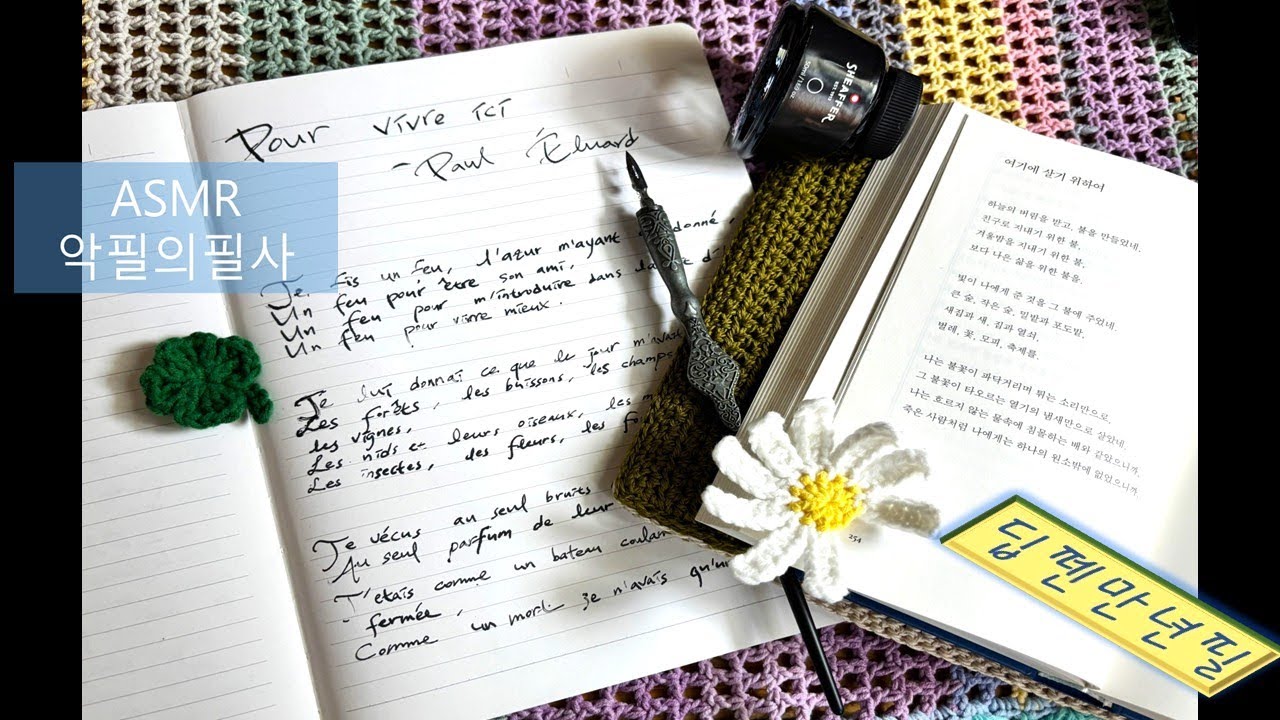 ASMR
악필의필사
Pour vivre ici
- Paul Éluard
Je fis un feu, l'azur m'ayant donné,
Un feu pour être son ami,
Un feu pour m'introduire dans la
Un feu pour vivre mieux.
Je lui donnai ce que le jour
Les forêts, les buissons, les champs
les vignes,
Les nids et leurs oiseaux, les
Les insectes, les fleurs, les
Je vécus au seul bruits
Au seul parfum de leur
J'etais comme un bateau
- fermée,
Comme un mort je n'avais
SHEAFFER
50ml/1.6 oz
여기에 살기 위하여
하늘의 버림을 받고, 불을 만들었네,
친구로 지내기 위한 불,
겨울밤을 지내기 위한 불,
보다 나은 삶을 위한 불을.
빛이 나에게 준 것을 그 불에 주었네.
큰 숲, 작은 숲, 밀밭과 포도밭,
새집과 새, 집과 열쇠,
벌레, 꽃, 모피, 축제를.
나는 불꽃이 파닥거리며 튀는 소리만으로,
그 불꽃이 타오르는 열기의 냄새만으로 살았네.
나는 흐르지 않는 물속에 침몰하는 배와 같았으니까,
죽은 사람처럼 나에게는 하나의 원소밖에 없었으니까.
254
딥펜만년필